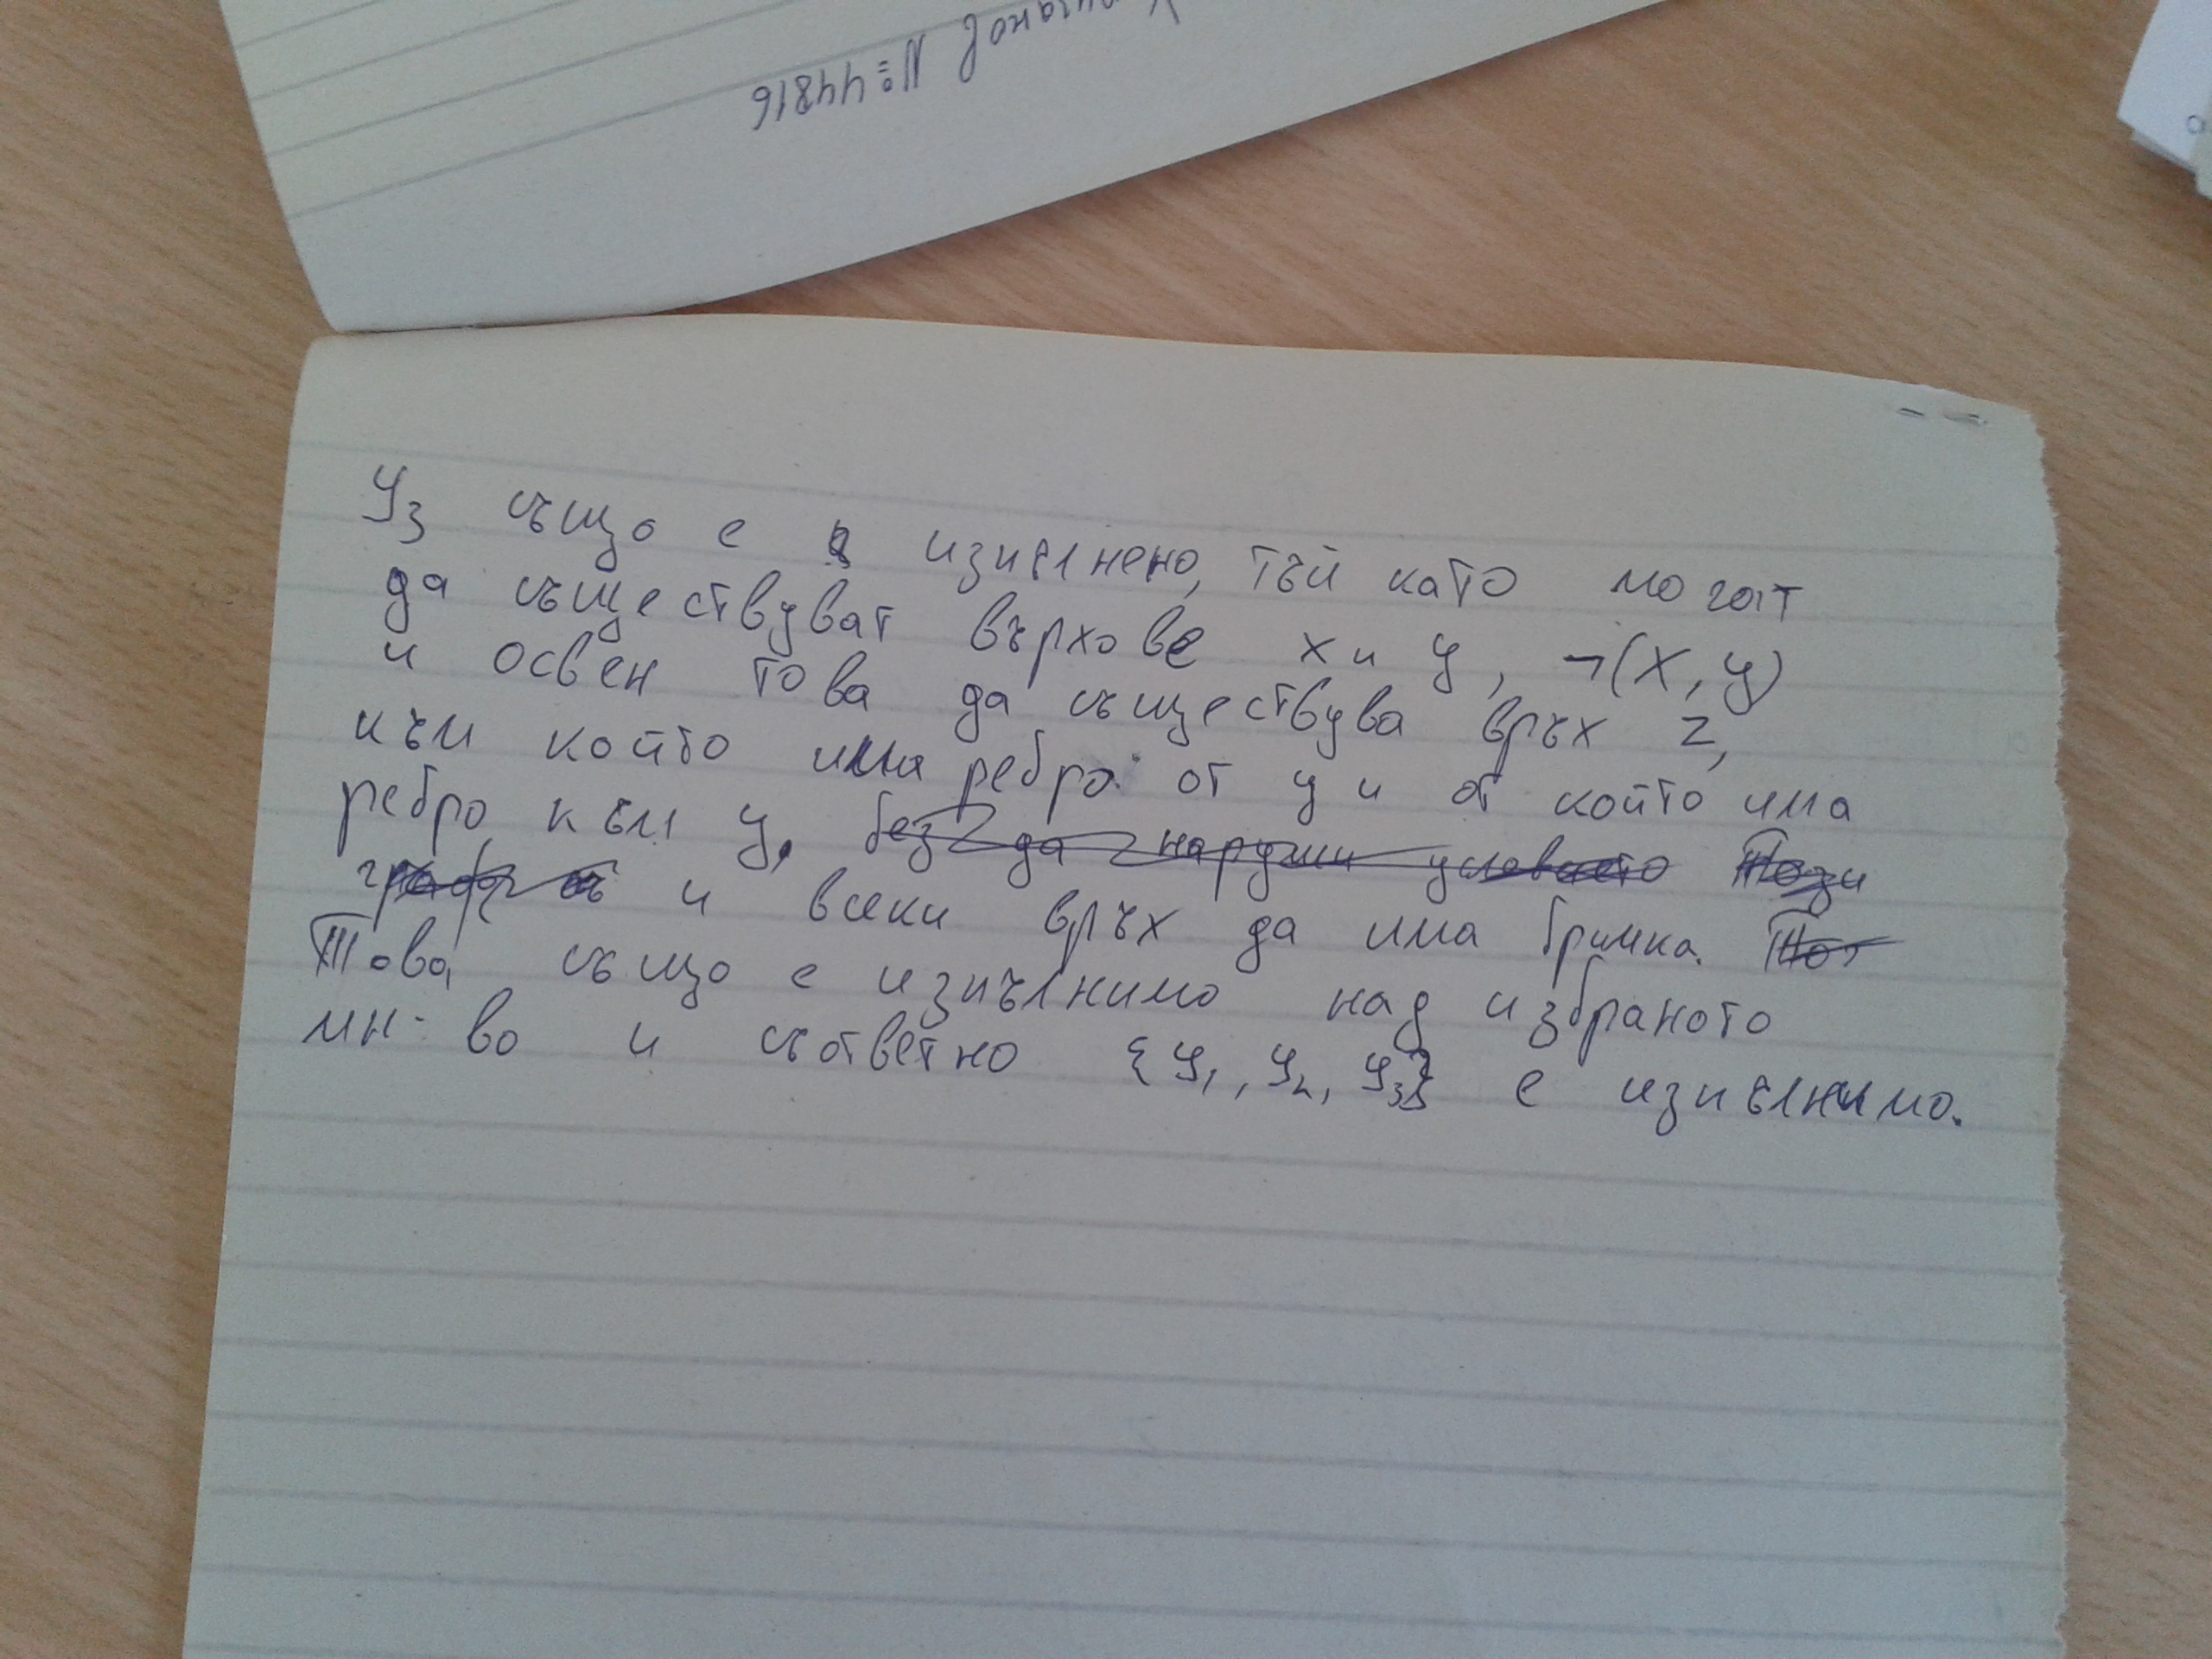 № 44816
У₃ също е изпълнено, тъй като могат
да съществуват върхове x и y, ¬(x, y)
и освен това да съществува връх z,
към който има ребро от y и от който има
ребро към y, без да наруши условието Този
граф и всеки връх да има бримка. Тов
Това също е изпълнимо над избраното
мн-во и съответно {У₁, У₂, У₃} е изпълнимо.